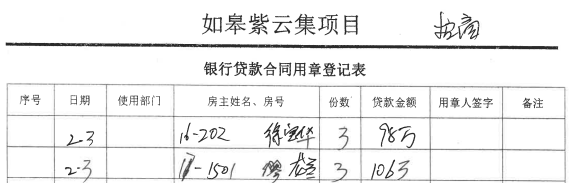 如皋紫云集项目 招商
银行贷款合同用章登记表
序号 日期 使用部门 房主姓名、房号 份数 贷款金额 用章人签字 备注
2-3 16-202 徐宝华 3 98万
2-3 -1501 3 106万